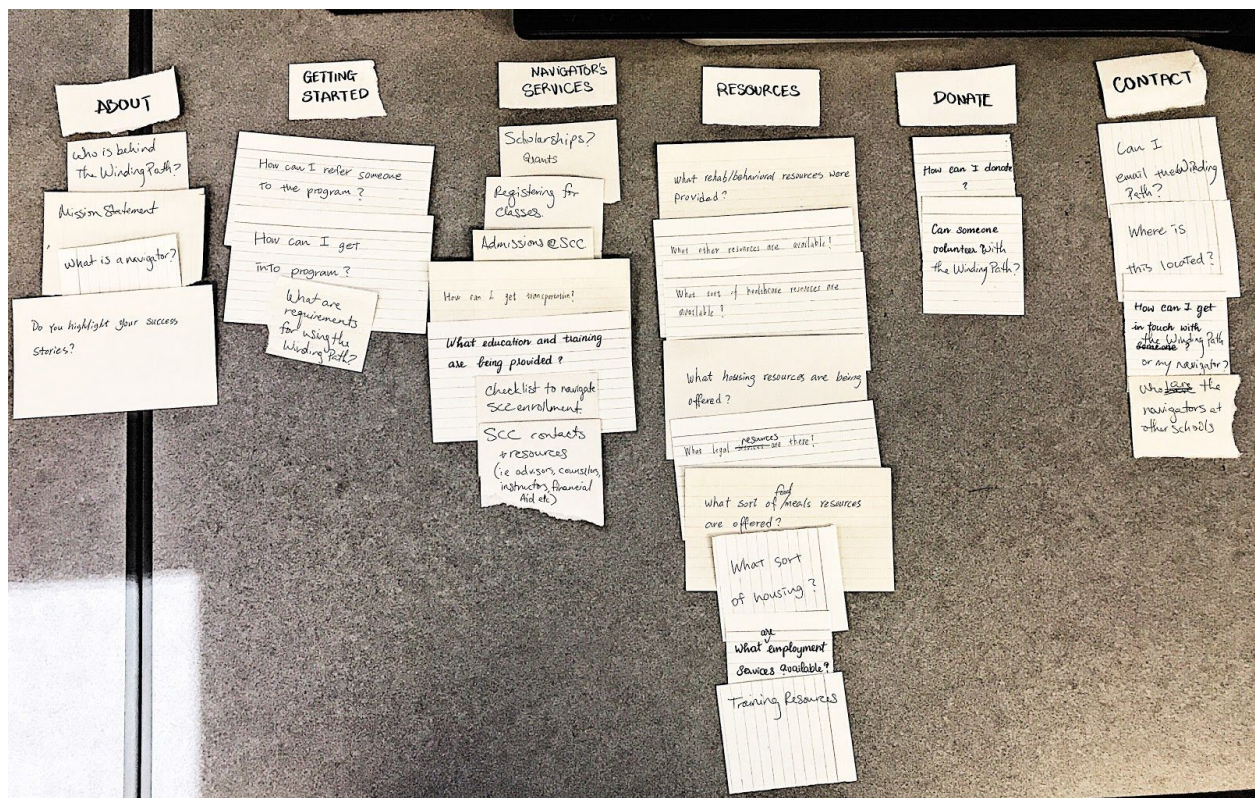 ABOUT
who is behind
The Winding Path?
Mission Statement
What is a navigator?
Do you highlight your success
stories?
GETTING
STARTED
How can I refer someone
to the program?
How can I get
into program?
What are
requirements
for using the
Winding Path?
NAVIGATOR'S
SERVICES
Scholarships?
Grants
Registering for
classes.
Admissions @ SCC
How can I get transportation?
What education and training
are being provided?
Checklist to navigate
SCC enrollment
SCC contacts
+ resources
(ie advisors, counselors,
instructors, financial
Aid etc)
RESOURCES
What rehab/behavioral resources were
provided?
What other resources are available!
What sort of healthcare resources are
available!
What housing resources are being
offered?
What legal resources are there!
What sort of food/meals resources
are offered?
What sort
of housing?
What are employment
services available?
Training Resources
DONATE
How can I donate
?
Can someone
volunteer with
the Winding Path?
CONTACT
Can I
email the Winding
Path?
Where is
this located?
How can I get
in touch with
the Winding Path
or my navigator?
Who are the
navigators at
other schools